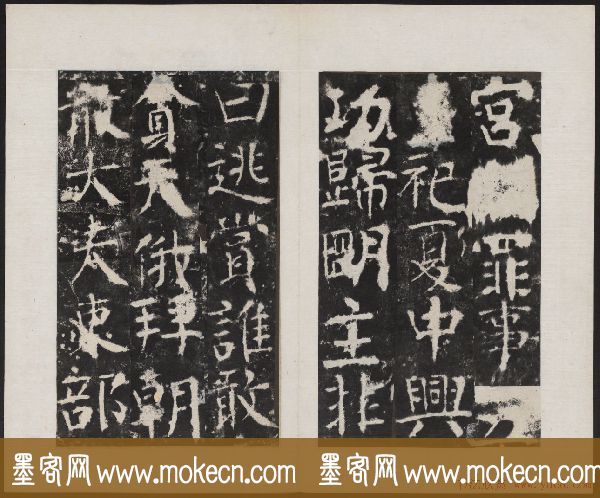 宮罪事五
祀夏申興
功歸明主非
曰逃賞誰敢
貪天俄拜朝
散大夫東部
墨客网 www.mokecn.com 墨客网 www.mokecn.com